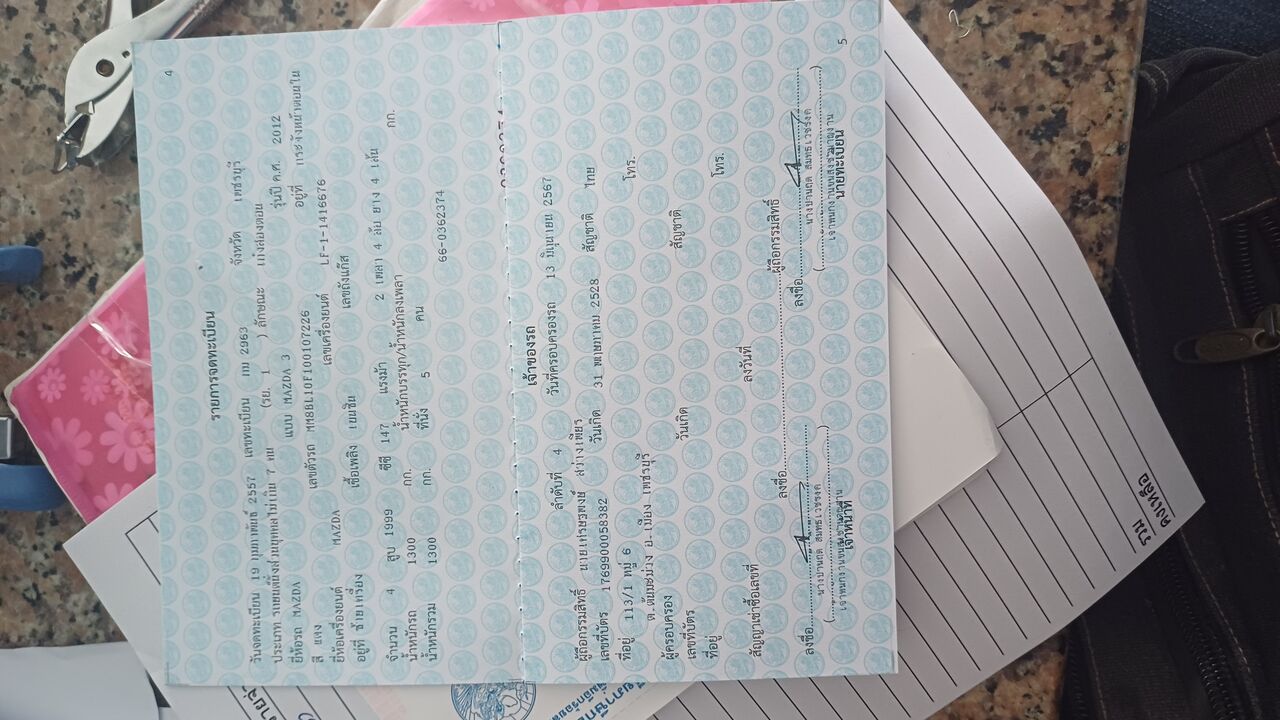 4
รายการจดทะเบียน
วันจดทะเบียน 19 กุมภาพันธ์ 2557 เลขทะเบียน กม 2963 จังหวัด เพชรบุรี
ประเภท รถยนต์นั่งส่วนบุคคลไม่เกิน 7 คน (รย. 1 ) ลักษณะ เก๋งสองตอน
ยี่ห้อรถ MAZDA แบบ MAZDA 3 รุ่นปี ค.ศ. 2012
สี แดง เลขตัวรถ MM8BL10F100107226 อยู่ที่
ยี่ห้อเครื่องยนต์ MAZDA เลขเครื่องยนต์ LF-1-1416676
อยู่ที่ ซ้ายเครื่อง เชื้อเพลิง เบนซิน เลขถังแก๊ส
จำนวน 4 สูบ 1999 ซีซี 147 แรงม้า 2 เพลา 4 ล้อ ยาง 4 เส้น
น้ำหนักรถ 1300 กก. น้ำหนักบรรทุก/น้ำหนักลงเพลา กก.
น้ำหนักรวม 1300 กก. ที่นั่ง 5 คน
66-0362374
เจ้าของรถ
ลำดับที่ 4 วันที่ครอบครองรถ 13 มิถุนายน 2567
ผู้ถือกรรมสิทธิ์ นาย สว่างเพียร
เลขที่บัตร 1769900058382 วันเกิด 31 พฤษภาคม 2528 สัญชาติ ไทย
ที่อยู่ 113/1 หมู่ 6 โทร.
ต.ต้นมะม่วง อ.เมือง เพชรบุรี
ผู้ครอบครอง
เลขที่บัตร วันเกิด สัญชาติ
ที่อยู่ โทร.
สัญญาเช่าซื้อเลขที่ ลงวันที่
ลงชื่อ ผู้ถือกรรมสิทธิ์
ลงชื่อ ลงชื่อ
เจ้าหน้าที่ นายทะเบียน
5
รวม
คงเหลือ